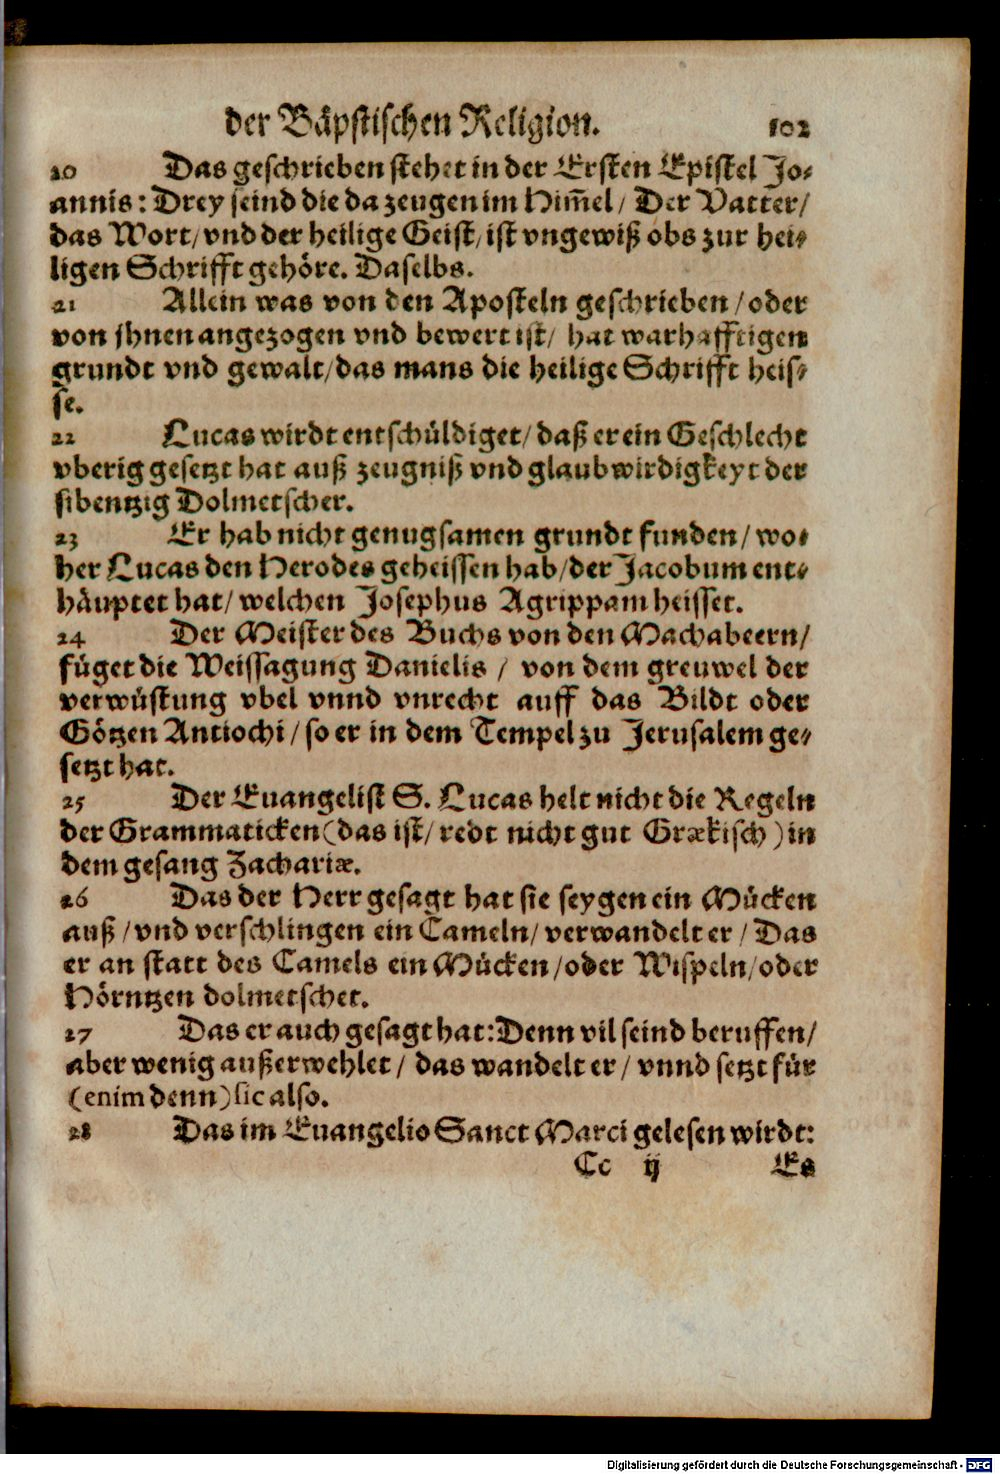 der Bäpstischen Religion. 102
20 Das geschrieben stehet in der Ersten Epistel Jo⸗
annis: Drey seind die da zeugen im Him̃el / Der Vatter /
das Wort / vnd der heilige Geist / ist vngewiß obs zur hei⸗
ligen Schrifft gehöre. Daselbs.
21 Allein was von den Aposteln geschrieben / oder
von jhnen angezogen vnd bewert ist / hat warhafftigen
grundt vnd gewalt / das mans die heilige Schrifft heis⸗
se.
22 Lucas wirdt entschüldiget / daß er ein Geschlecht
vberig gesetzt hat auß zeugniß vnd glaubwirdigkeyt der
sibentzig Dolmetscher.
23 Er hab nicht genugsamen grundt funden / wo⸗
her Lucas den Herodes geheissen hab / der Jacobum ent⸗
häuptet hat / welchen Josephus Agrippam heisset.
24 Der Meister des Buchs von den Machabeern /
füget die Weissagung Danielis / von dem greuwel der
verwüstung vbel vnnd vnrecht auff das Bildt oder
Götzen Antiochi / so er in dem Tempel zu Jerusalem ge⸗
setzt hat.
25 Der Euangelist S. Lucas helt nicht die Regeln
der Grammaticken (das ist / redt nicht gut Grækisch) in
dem gesang Zachariæ.
26 Das der Herr gesagt hat sie seygen ein Mücken
auß / vnd verschlingen ein Cameln / verwandelt er / Das
er an statt des Camels ein Mücken / oder Wispeln / oder
Hörntzen dolmetschet.
27 Das er auch gesagt hat: Denn vil seind beruffen /
aber wenig außerwehlet / das wandelt er / vnnd setzt für
(enim denn) sic also.
28 Das im Euangelio Sanct Marci gelesen wirdt:
Cc ij Es
Digitalisierung gefördert durch die Deutsche Forschungsgemeinschaft - DFG